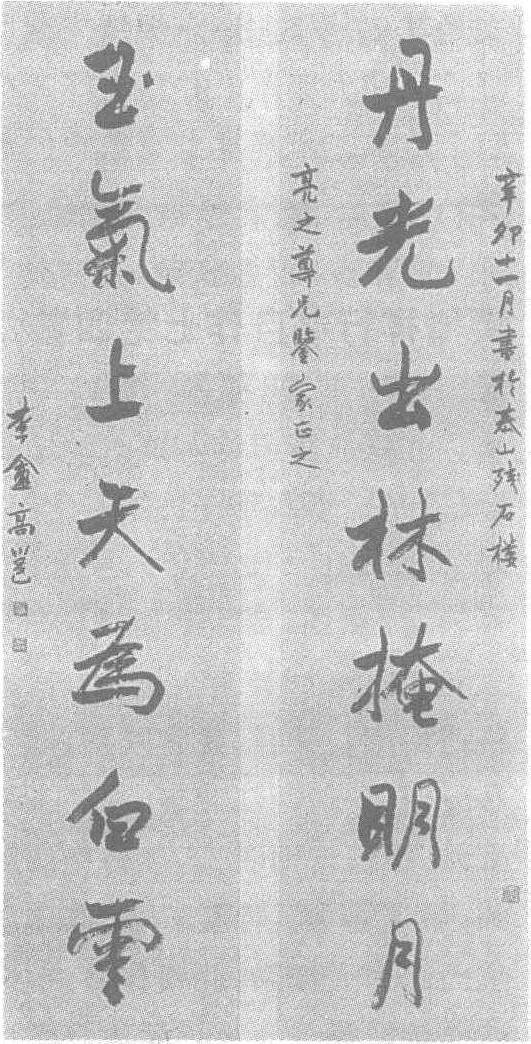 辛卯十一月書於泰山殘石樓
丹光出林掩明月
亮之尊兄鑒家正之
玉氣上天為白雲
李盦高邕